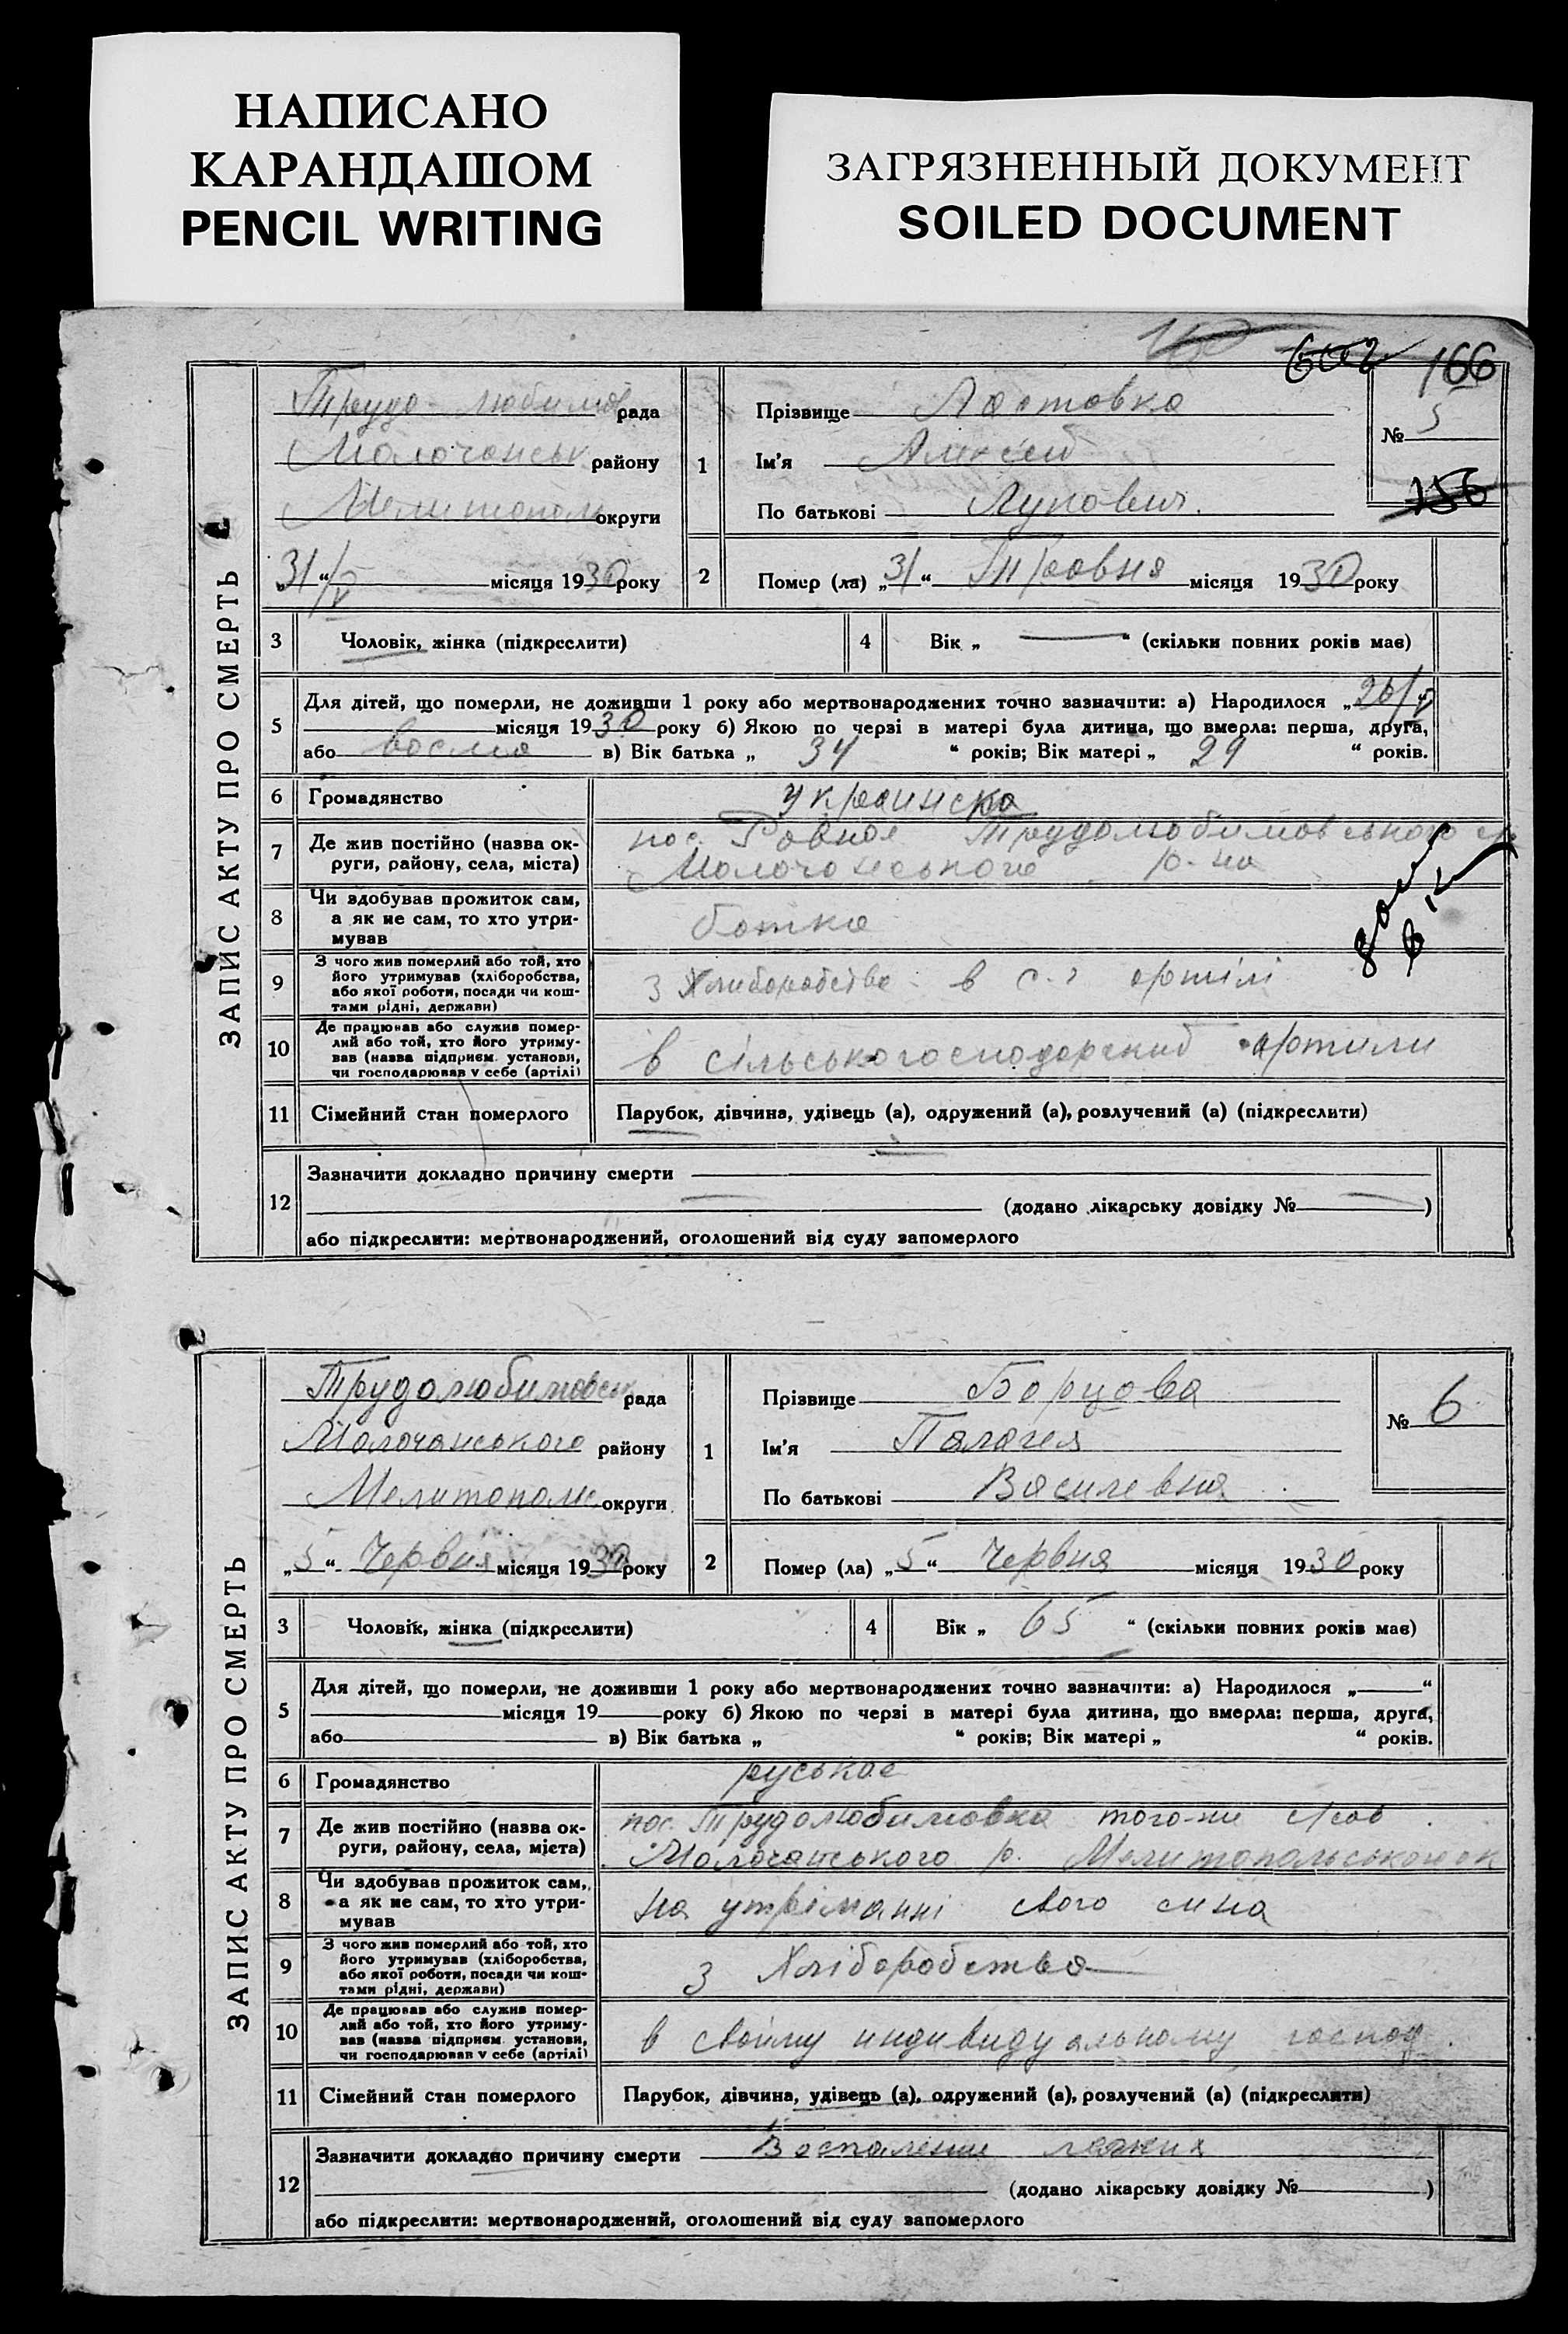 НАПИСАНО
КАРАНДАШОМ
PENCIL WRITING
ЗАГРЯЗНЕННЫЙ ДОКУМЕНТ
SOILED DOCUMENT
166
№ 5
156
ЗАПИС АКТУ ПРО СМЕРТЬ
Трудолюбимов рада
Молочанськ району
Мелитополь округи
„31“ V місяця 1930 року
1 Прізвище Ластовка
Ім'я Алексей
По батькові
2 Помер (ла) „31“ Травня місяця 1930 року
3 Чоловік, жінка (підкреслити)
4 Вік „ — “ (скільки повних років має)
5 Для дітей, що померли, не доживши 1 року або мертвонароджених точно зазначити: а) Народилося „26/V
місяця 1930 року б) Якою по черзі в матері була дитина, що вмерла: перша, друга,
або восма в) Вік батька „ 34 “ років; Вік матері „ 29 “ років.
6 Громадянство украинска
7 Де жив постійно (назва ок-
руги, району, села, міста)
пос. Ровное Трудолюбимовського
Молочанського р-на
8 Чи здобував прожиток сам,
а як не сам, то хто утри-
мував
батко
9 З чого жив померлий або той, хто
його утримував (хліборобства,
або якої роботи, посади чи кош-
тами рідні, держави)
з Хлиборобства в с.г артілі
10 Де працював або служив помер-
лий або той, хто його утриму-
вав (назва підприєм. установи,
чи господарював у себе (артілі)
в сільськогосподарский артили
11 Сімейний стан померлого
Парубок, дівчина, удівець (а), одружений (а), розлучений (а) (підкреслити)
12 Зазначити докладно причину смерти
(додано лікарську довідку № — )
або підкреслити: мертвонароджений, оголошений від суду запомерлого
ЗАПИС АКТУ ПРО СМЕРТЬ
Трудолюбимовськ рада
Молочанського району
Мелитополь округи
„5“ Червня місяця 1930 року
1 Прізвище Борцова
Ім'я Палагея
По батькові Василевна
№ 6
2 Помер (ла) „5“ Червня місяця 1930 року
3 Чоловік, жінка (підкреслити)
4 Вік „ 65 “ (скільки повних років має)
5 Для дітей, що померли, не доживши 1 року або мертвонароджених точно зазначити: а) Народилося „ “
місяця 19 року б) Якою по черзі в матері була дитина, що вмерла: перша, друга,
або в) Вік батька „ “ років; Вік матері „ “ років.
6 Громадянство руськое
7 Де жив постійно (назва ок-
руги, району, села, міста)
пос. Трудолюбимовка того-ж
Молочанського р. Мелитопольськоі ок
8 Чи здобував прожиток сам,
а як не сам, то хто утри-
мував
на утріманні свого сина
9 З чого жив померлий або той, хто
його утримував (хліборобства,
або якої роботи, посади чи кош-
тами рідні, держави)
з Хліборобства
10 Де працював або служив помер-
лий або той, хто його утриму-
вав (назва підприєм. установи,
чи господарював у себе (артілі)
в своїму индивидуальному господ.
11 Сімейний стан померлого
Парубок, дівчина, удівець (а), одружений (а), розлучений (а) (підкреслити)
12 Зазначити докладно причину смерти Воспаление легких
(додано лікарську довідку № )
або підкреслити: мертвонароджений, оголошений від суду запомерлого